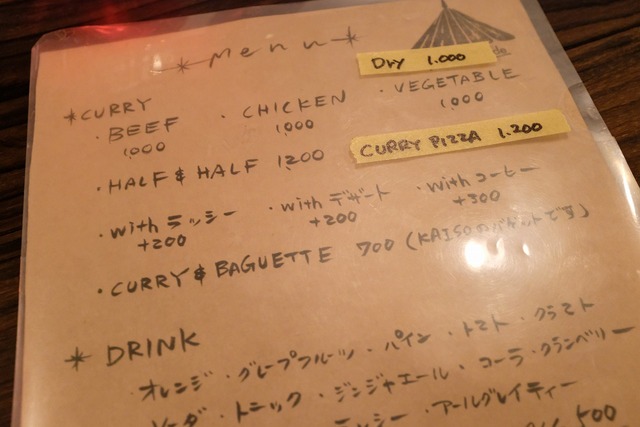 Menu
Dry 1.000
*CURRY
・BEEF ・CHICKEN ・VEGETABLE
1,000 1,000 1,000
CURRY PIZZA 1.200
・HALF & HALF 1,200
・with ラッシー ・with デザート ・with コーヒー
+200 +200 +300
・CURRY & BAGUETTE 700 (KAISOのバゲットです)
* DRINK
オレンジ・グレープフルーツ・パイン・トマト・クラマト
トニック・ジンジャエール・コーラ・クランベリー
・アールグレイティー
500